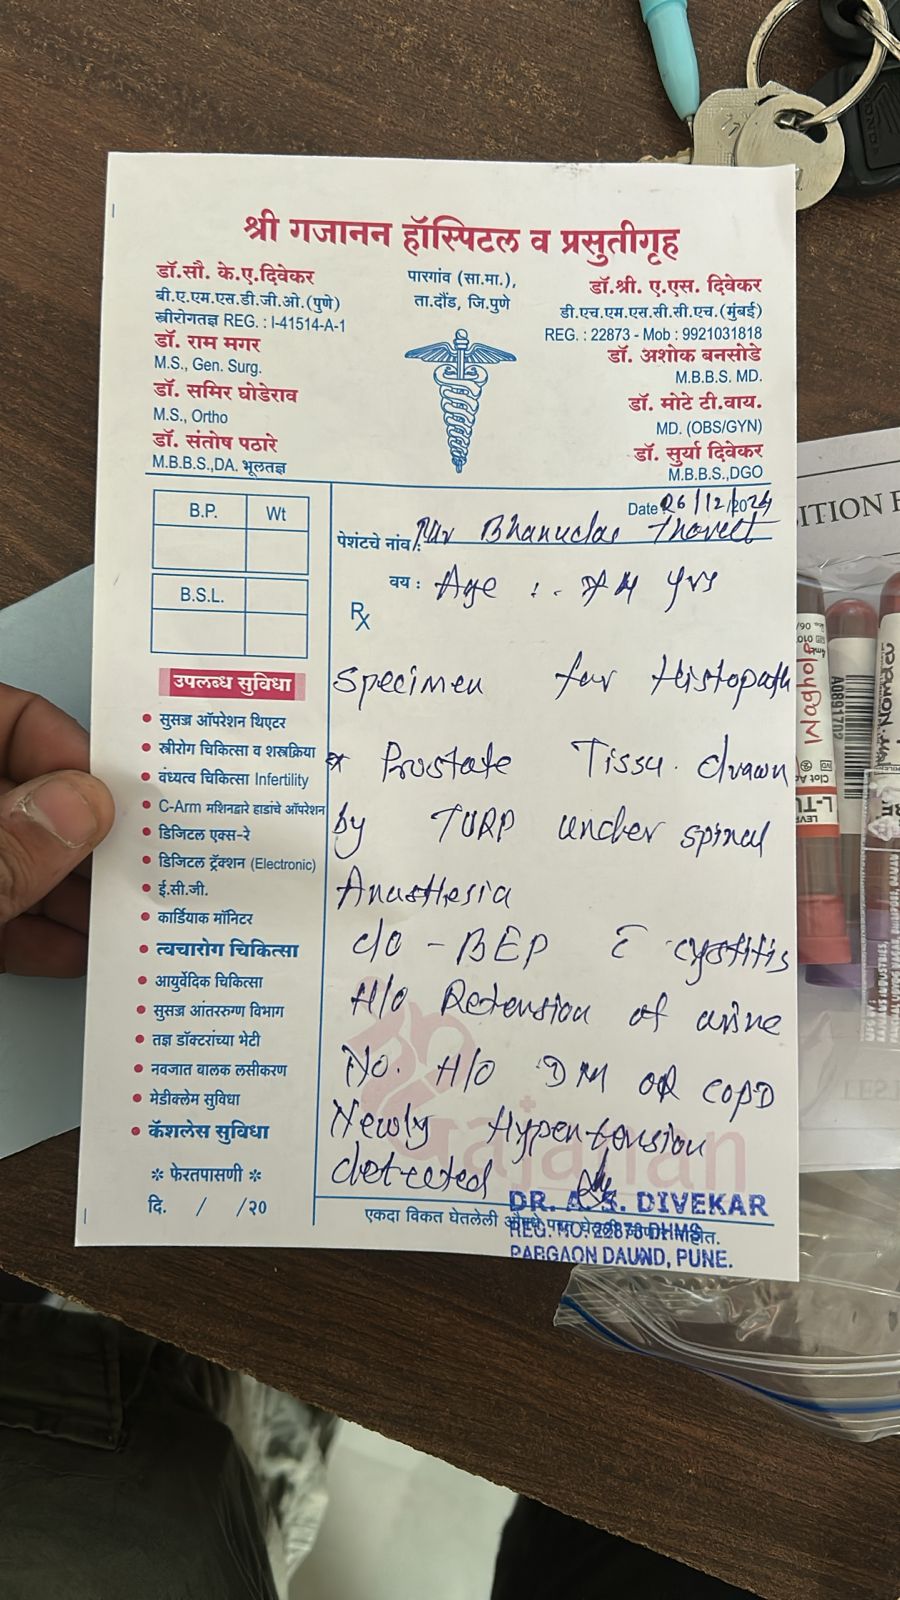 श्री गजानन हॉस्पिटल व प्रसुतीगृह
डॉ.सौ. के.ए.दिवेकर
बी.ए.एम.एस.डी.जी.ओ.(पुणे)
स्त्रीरोगतज्ञ REG. : I-41514-A-1
डॉ. राम मगर
M.S., Gen. Surg.
डॉ. समिर घोडेराव
M.S., Ortho
डॉ. संतोष पठारे
M.B.B.S.,DA. भूलतज्ञ
पारगांव (सा.मा.),
ता.दौंड, जि.पुणे
डॉ.श्री. ए.एस. दिवेकर
डी.एच.एम.एस.सी.सी.एच.(मुंबई)
REG. : 22873 - Mob : 9921031818
डॉ. अशोक बनसोडे
M.B.B.S. MD.
डॉ. मोटे टी.वाय.
MD. (OBS/GYN)
डॉ. सुर्या दिवेकर
M.B.B.S.,DGO
B.P. Wt
B.S.L.
उपलब्ध सुविधा
सुसज्ज ऑपरेशन थिएटर
स्त्रीरोग चिकित्सा व शस्त्रक्रिया
वंध्यत्व चिकित्सा Infertility
C-Arm मशिनद्वारे हाडांचे ऑपरेशन
डिजिटल एक्स-रे
डिजिटल ट्रॅक्शन (Electronic)
ई.सी.जी.
कार्डियाक मॉनिटर
त्वचारोग चिकित्सा
आयुर्वेदिक चिकित्सा
सुसज्ज आंतररुग्ण विभाग
तज्ञ डॉक्टरांच्या भेटी
नवजात बालक लसीकरण
मेडीक्लेम सुविधा
कॅशलेस सुविधा
फेरतपासणी
दि. / /२०
Date 26/12/2024
पेशंटचे नांव : Mr Bhanudas
वय : Age :- 74 yrs
Rx
Specimen for Histopath
Prostate Tissu drawn
by TURP under spinal
Anasthesia
c/o - BEP c cystitis
H/o Retension of urine
No. H/o DM OR COPD
Newly Hypentension
detected
Gajanan
DR. A. S. DIVEKAR
REG. NO. 22873 DHMS
PARGAON DAUND, PUNE.
एकदा विकत घेतलेली औषधे परत घेतली जाणार नाहीत.
ITION
Waghole
Clot A
L-TU
A0891702